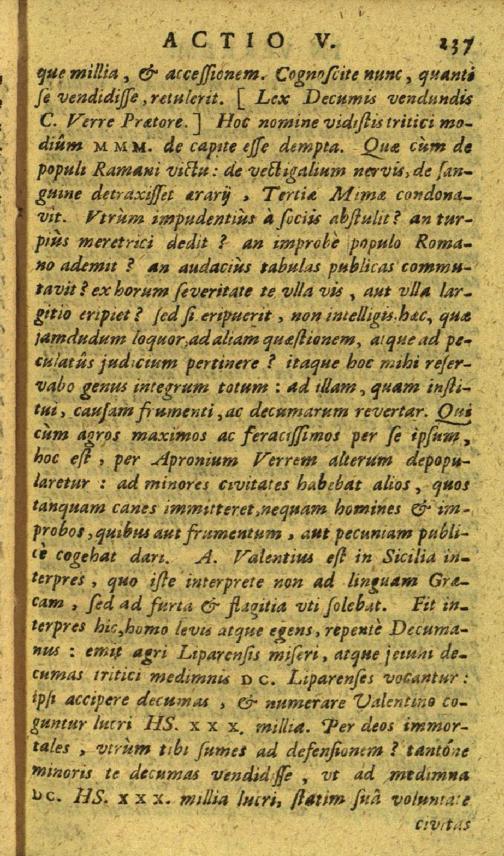 ACTIO V. 237
que millia, & accessionem. Cognoscite nunc, quanti
se vendidisse, retulerit. [ Lex Decumis vendundis
C. Verre Prætore. ] Hoc nomine vidistis tritici mo-
diûm MMM. de capite esse dempta. Quæ cùm de
populi Ramani victu: de vectigalium nervis, de san-
guine detraxisset ærarij, Tertiæ Mimæ condona-
vit. Vtrùm impudentiùs à sociis abstulit? an tur-
piùs meretrici dedit? an improbè populo Roma-
no ademit? an audaciùs tabulas publicas commu-
tavit? ex horum severitate te vlla vis, aut vlla lar-
gitio eripiet? sed si eripuerit, non intelligis hæc, quæ
jamdudum loquor, ad aliam quæstionem, atque ad pe-
culatûs judicium pertinere? itaque hoc mihi reser-
vabo genus integrum totum: ad illam, quam insti-
tui, causam frumenti, ac decumarum revertar. Qui
cùm agros maximos ac feracissimos per se ipsum,
hoc est, per Apronium Verrem alterum depopu-
laretur: ad minores civitates habebat alios, quos
tanquam canes immitteret, nequam homines & im-
probos, quibus aut frumentum, aut pecuniam publi-
cè cogebat dari. A. Valentius est in Sicilia in-
terpres, quo iste interprete non ad linguam Græ-
cam, sed ad furta & flagitia vti solebat. Fit in-
terpres hic, homo levis atque egens, repentè Decuma-
nus: emit agri Liparensis miseri, atque jejuni de-
cumas tritici medimnis DC. Liparenses vocantur:
ipsi accipere decumas, & numerare Valentino co-
guntur lucri HS. XXX. millia. Per deos immor-
tales, vtrùm tibi sumes ad defensionem? tantóne
minoris te decumas vendidisse, vt ad medimna
DC. HS. XXX. millia lucri, statim suâ voluntate
civitas